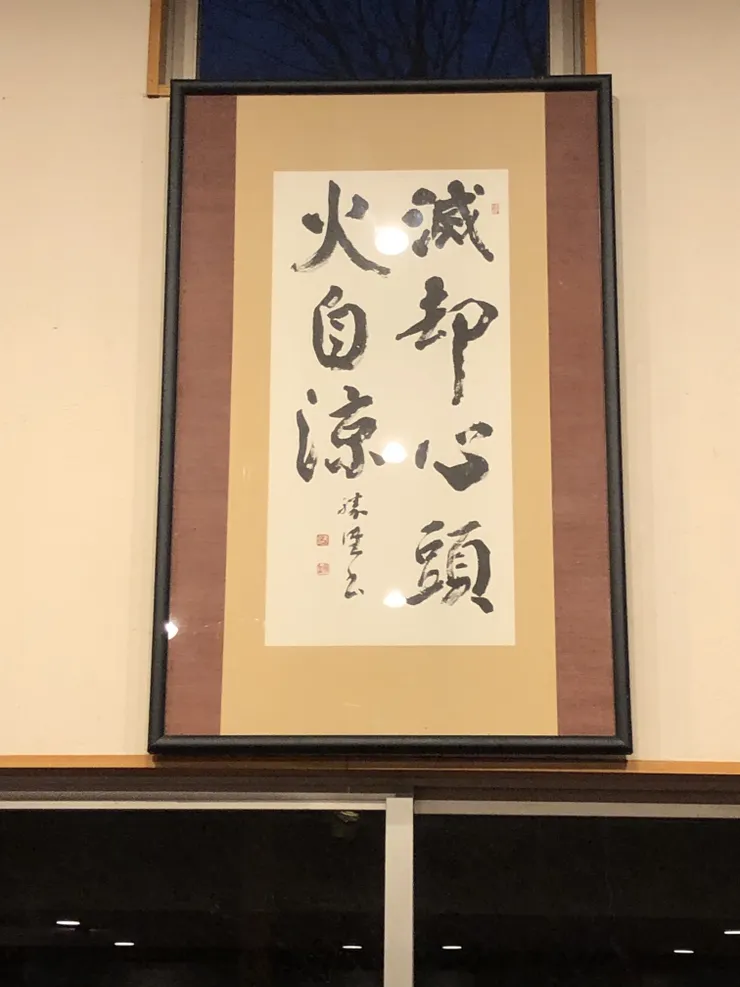 滅却心頭
火自涼